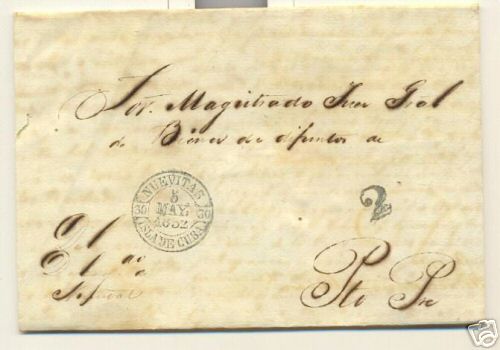 Sor. Magistrado Juez Gral
de Bienes de difuntos de
NUEVITAS
5
MAY.
1852
30 30
ISLA DE CUBA
2
Del
Pto Pe
ebY